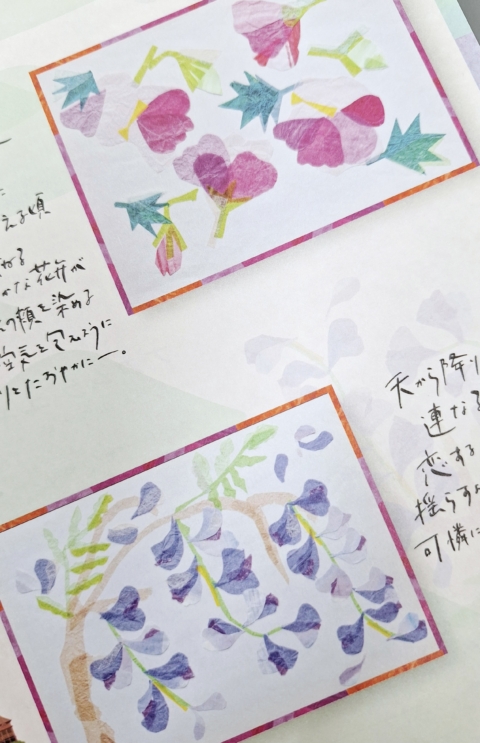 える頃
ねる
かな花弁が
の頬を染める
空気を包むように
りとたおやかに―。
天から降り
連なる
恋する
揺らすよ
可憐に